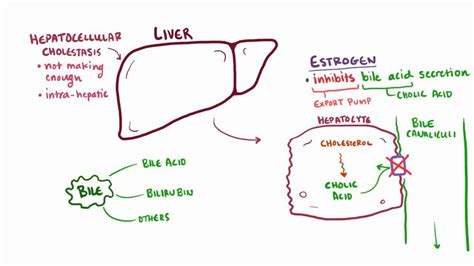 HEPATOCELLULAR
CHOLESTASIS
• not making
enough
• intra-hepatic
LIVER
ESTROGEN
• inhibits bile acid secretion
EXPORT PUMP
CHOLIC ACID
HEPATOCYTE
CHOLESTEROL
CHOLIC
ACID
BILE
CANALICULI
BILE
BILE ACID
BILIRUBIN
OTHERS